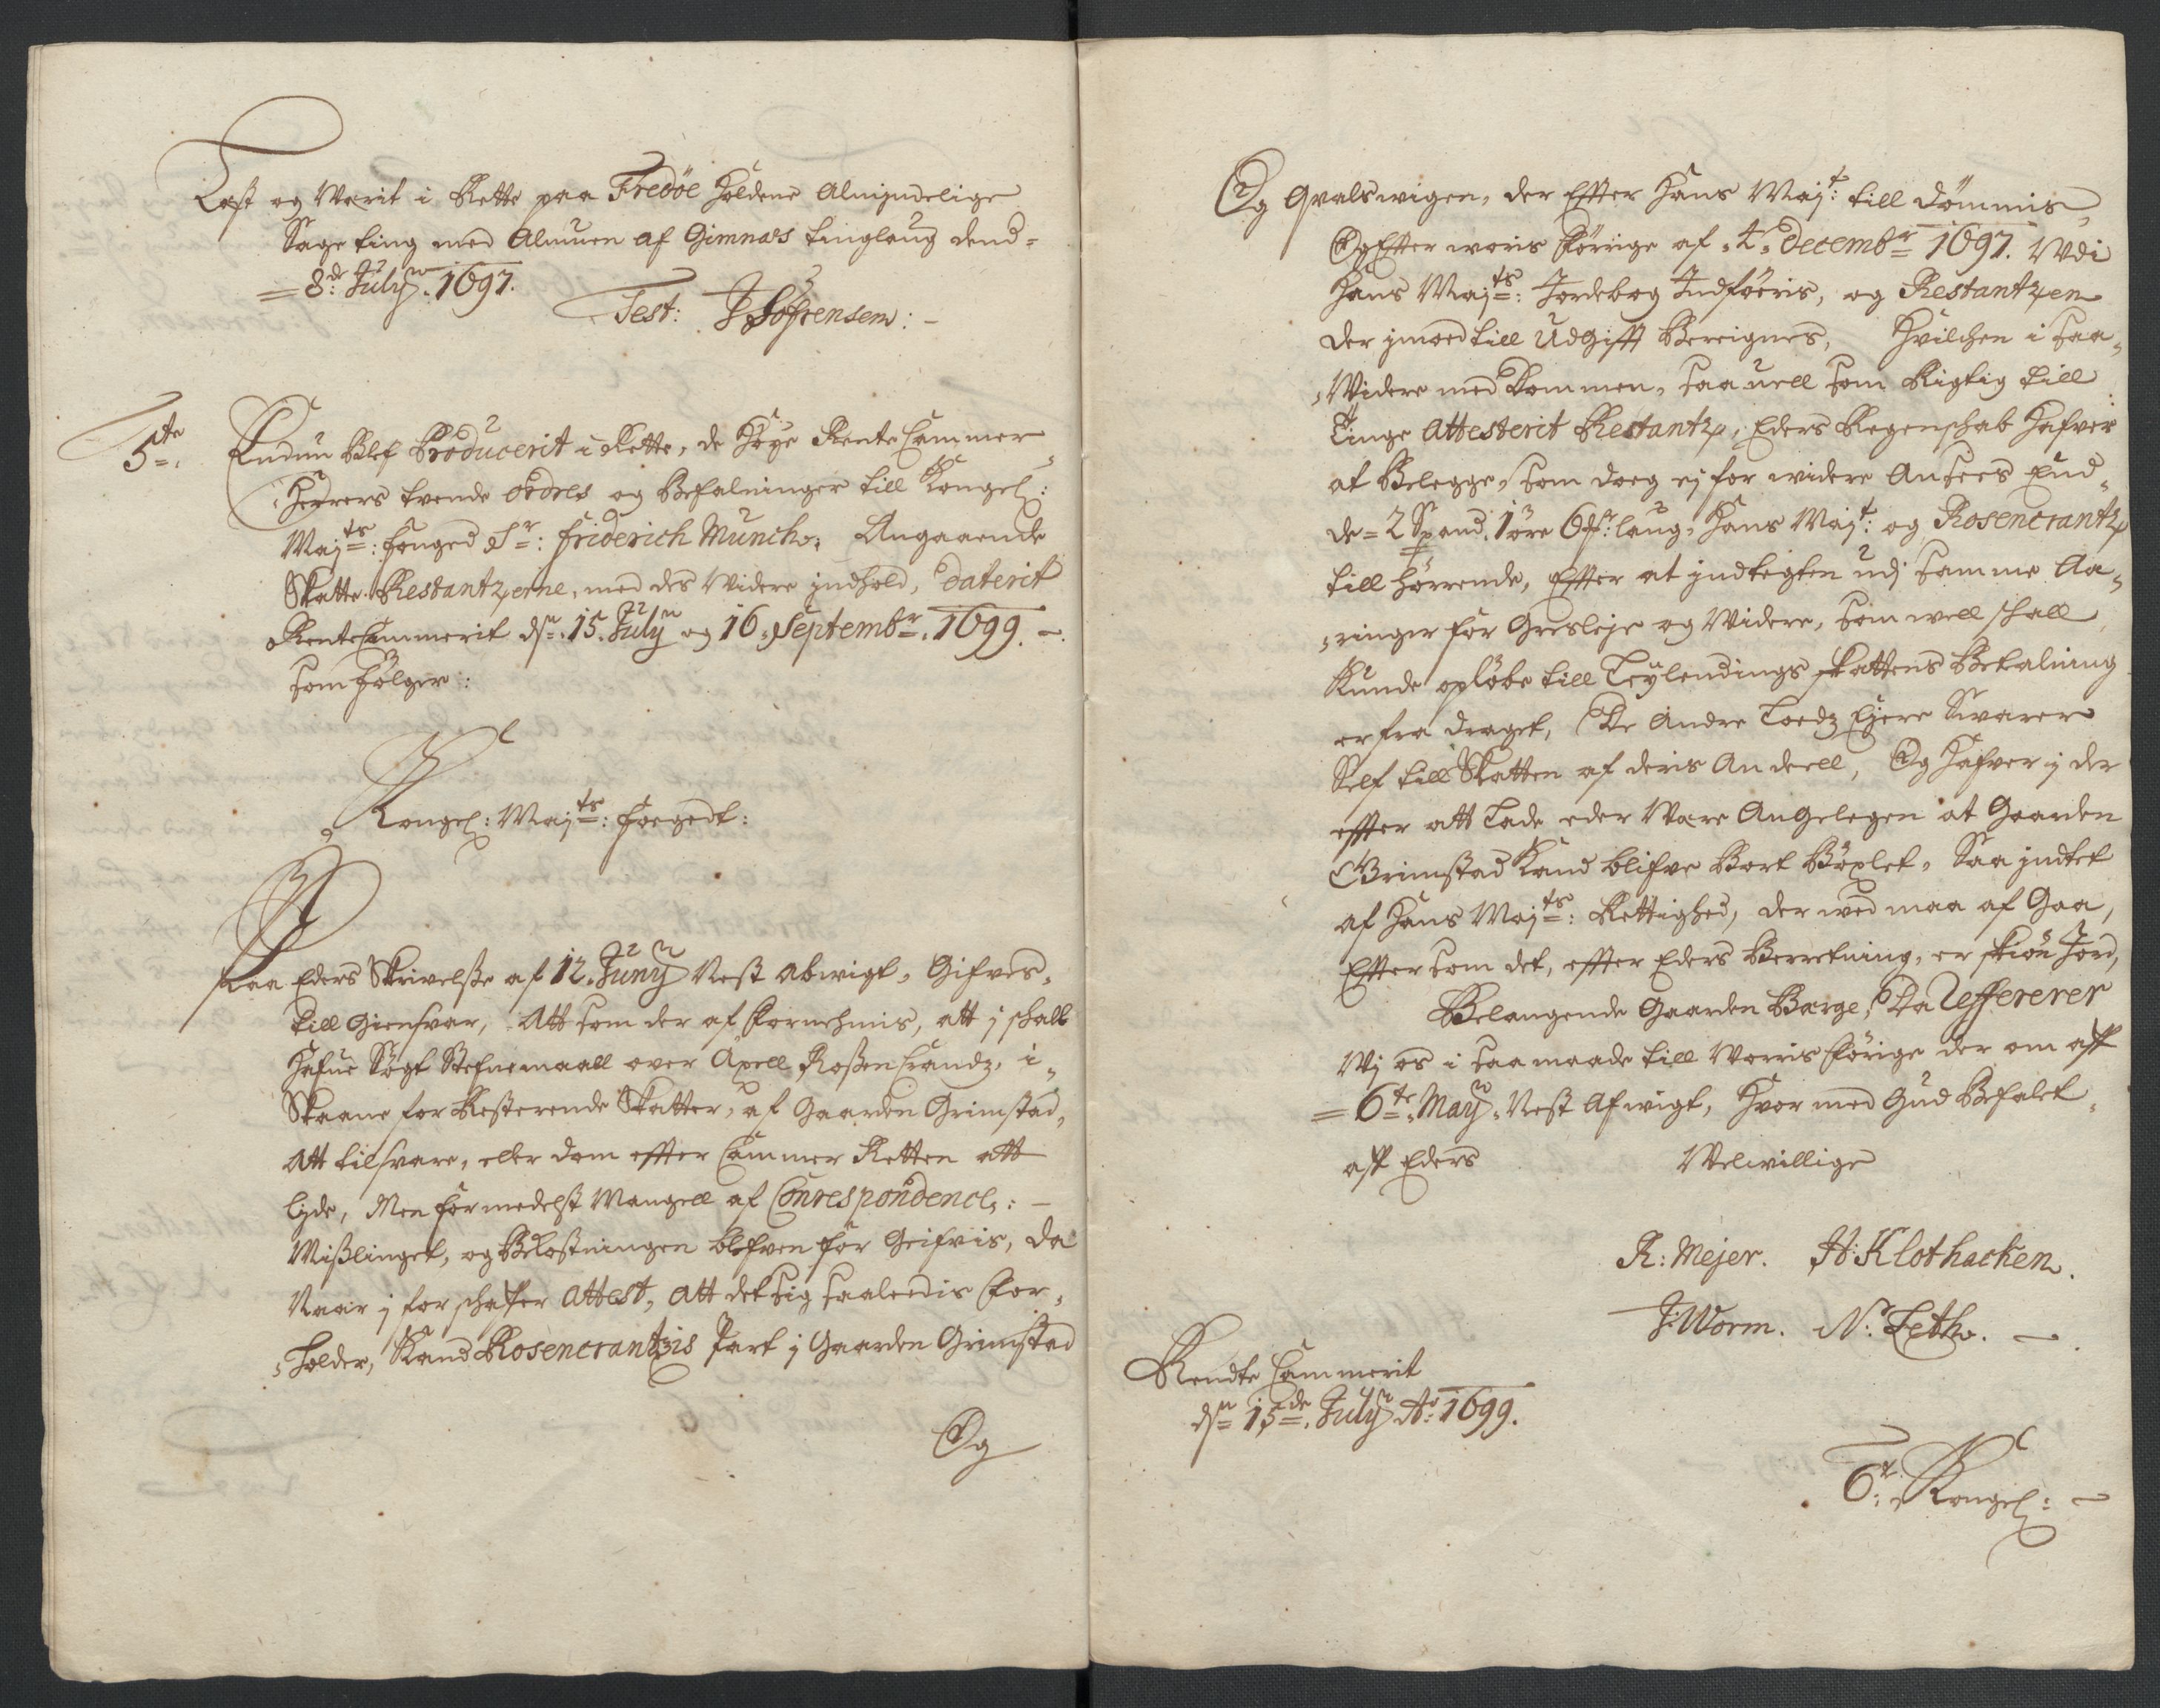 Læst og Værit i Rette paa Fredöe holdene Almindelige
Sage ting med Almuen af Gimnæs tinglaug dend=
= 8de July 1697.
Test: J Söfrensen: -
5te. Endnu blef Producerit i Rette, de Höye Rente Cammer
Herrers tvende ordres og Befalninger till Kongel:
Majts: fouged Sr: Friderich Munch, Angaaende
Skatte Restantzerne, med des Videre indhold, daterit
RenteCammerit dn. 15. July og 16 Septembr. 1699. -
som fölger:
Kongel: Majts: foegedt:
Paa Eders Skrivelsse af 12. Juny Nest abvigt, Gifves,
till giensvar, Att som der af fornehmis, att j schall
Hafue Sögt Stefnemaall over Axell Rossen Crandz, i
Skaane for Resterende Skatter, af Gaarden Grimstad,
att tilsvare, eller dom effter Cammer Retten att
lyde, Men formedelst Mangell af Correspondence: -
Misslinget, og Bekostningen blefven for geifvis, da
Naar j forschaffer attest, att det sig saaledis for,
,holder, Kand Rosencrantzis Part j Gaarden Grimstad
Og
Og Qvalswigen, der Effter Hans Majt: till dömmis,
Og Effter woris förrige af 4. decembr 1697. Udi
Hans Majts: Jordebog Indföeris, og Restantzen
der jmod till Udgifft Bereignes, Hvilchen i saa,
,Videre med dommen, saa vell som Rigtig till
Tinge Attesterit Restantz, Eders Regenschab Hafver
at Belegge, som doeg ej for widere Ansees End,
de = 2 Spand 1 öre 6 laug, Hans Majt: og Rosencrantz
till hörrende, Effter at indtegten udj samme Aa,
,ringer for Græsleje og Videre, som well schall
Kunde oplöbe till Leylendings skattens Betalning
er fra draget, De Andre Loedz Ejere Svarer
Self till Skatten af deris Andeell, Og Hafver j der
effter att Lade eder Være Angelegen at Gaarden
Grimstad Kand blifve Bort Böxlet, Saa indtet
af Hans Majts: Rettighed, der ved maa af Gaa,
Effter som det, effter Eders Berretning, er skiön Jord,
Belangende Gaarden Berge, Da Refererer
Wj os i saa maade till Worris förrige der om aff
= 6te. May. Nest Afwigt, Hvor med Gud Befalet
aff Eders Velvillige
R: Mejer. H: Klothacken.
J: Worm. N: Leth. -
Rendte Cammerit
dn 15de. July Ao 1699.
6te. Kongel: -